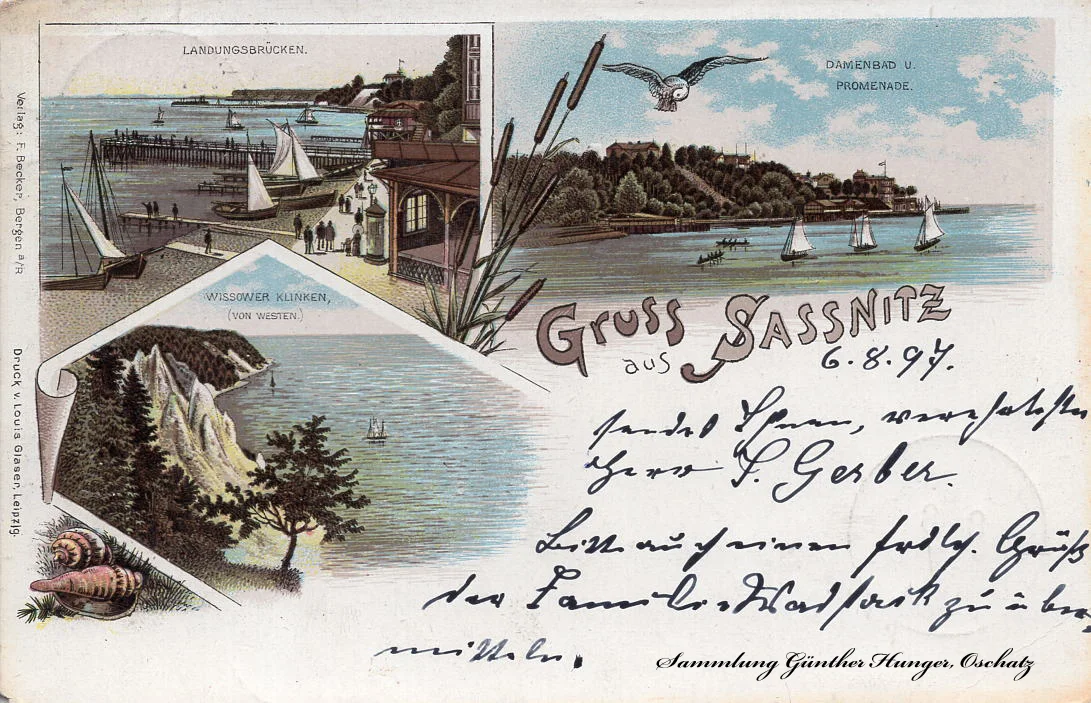 LANDUNGSBRÜCKEN.
DAMENBAD U.
PROMENADE.
Verlag: F. Becker, Bergen a/R
WISSOWER KLINKEN,
(VON WESTEN.)
Gruss
aus Sassnitz
6.8.97.
sendet Ihnen, verehrtester
Herr Gerber.
Bitte auch einen frdlch. Gruß
der Familie zu über-
mitteln.
Druck v. Louis Glaser, Leipzig.
Sammlung Günther Hunger, Oschatz